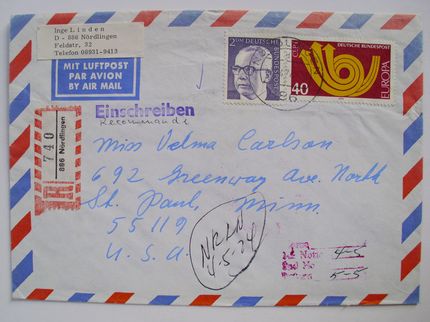 Inge Linden
D - 886 Nördlingen
Feldstr. 32
Telefon 09081-9413
MIT LUFTPOST
PAR AVION
BY AIR MAIL
DEUTSCHE BUNDESPOST
DEUTSCHE BUNDESPOST
CEPT
EUROPA
40
Einschreiben
Recommandé
740
886 Nördlingen
Miss Velma Carlson
692 Greenway Ave. North
St. Paul, Minn.
55119
U.S.A.
4-5
5-5